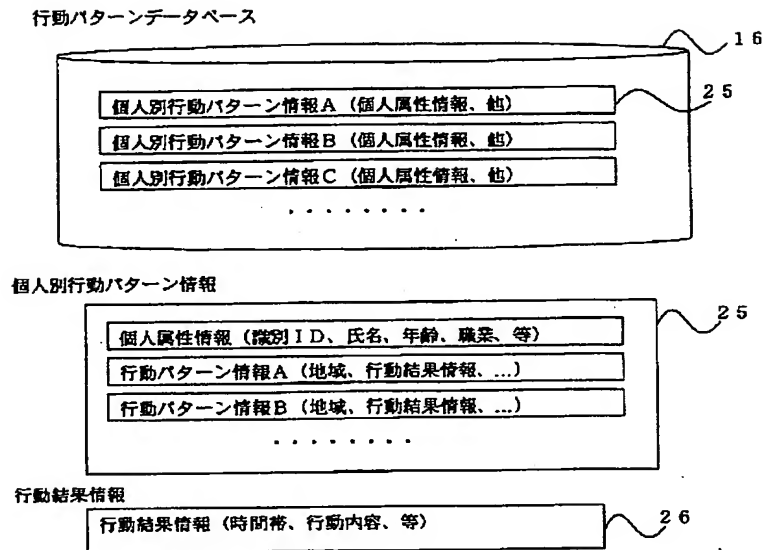 行動パターンデータベース
16
個人別行動パターン情報A(個人属性情報、他)
25
個人別行動パターン情報B(個人属性情報、他)
個人別行動パターン情報C(個人属性情報、他)
........
個人別行動パターン情報
25
個人属性情報(識別ID、氏名、年齢、職業、等)
行動パターン情報A(地域、行動結果情報、...)
行動パターン情報B(地域、行動結果情報、...)
........
行動結果情報
行動結果情報(時間帯、行動内容、等)
26